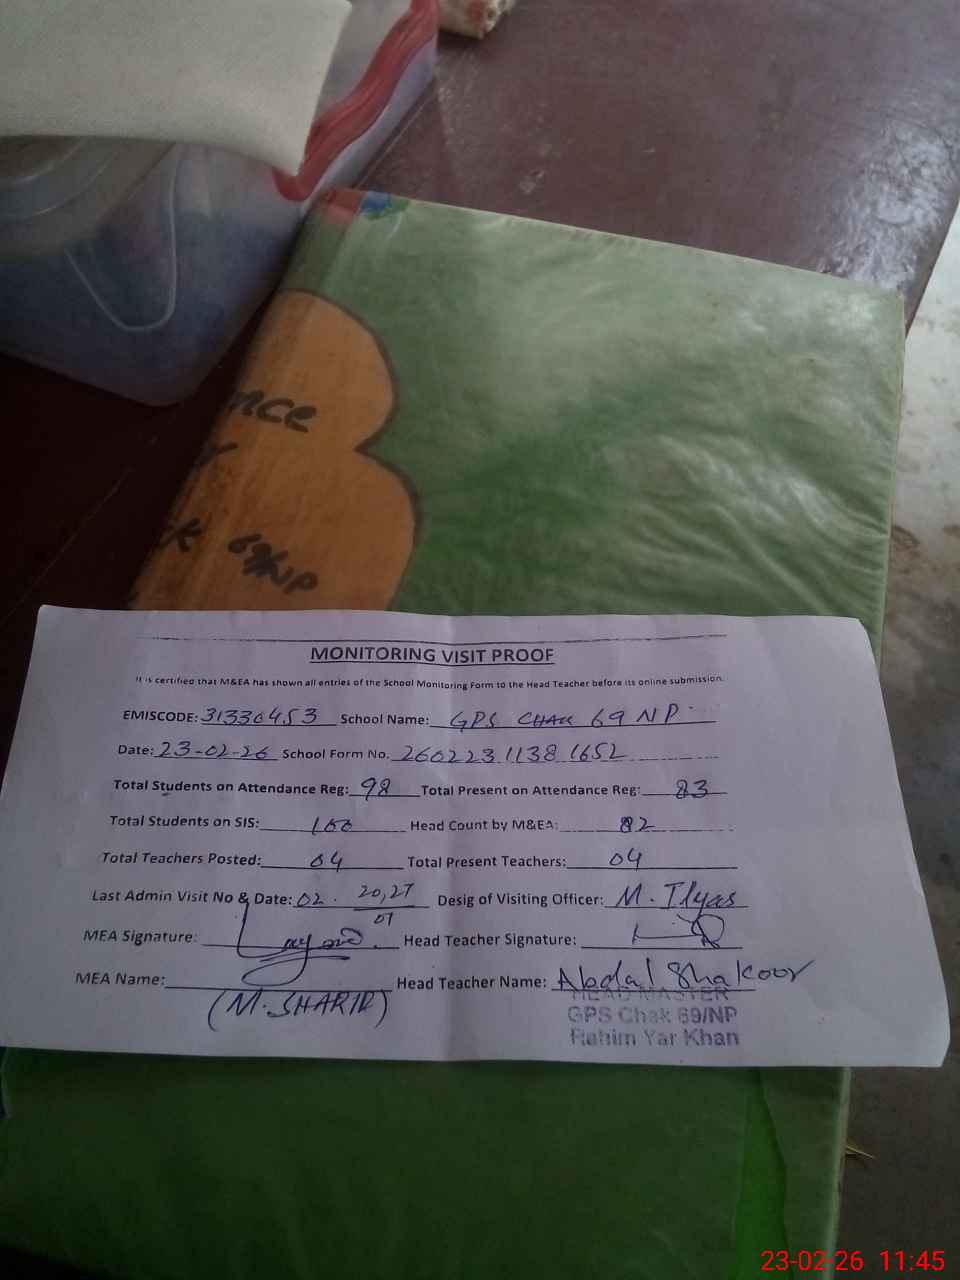 nce
69/NP
MONITORING VISIT PROOF
It is certified that M&EA has shown all entries of the School Monitoring Form to the Head Teacher before its online submission.
EMISCODE: 31330453 School Name: GPS CHAK 69 NP
Date: 23-02-26 School Form No. 260223 1138 1652
Total Students on Attendance Reg: 98 Total Present on Attendance Reg: 83
Total Students on SIS: 100 Head Count by M&EA: 82
Total Teachers Posted: 04 Total Present Teachers: 04
Last Admin Visit No & Date: 02. 20,27/01 Desig of Visiting Officer: M. Ilyas
MEA Signature: Head Teacher Signature:
MEA Name: Head Teacher Name: Abdal Shakoor
(M. SHARIF)
HEAD MASTER
GPS Chak 69/NP
Rahim Yar Khan
23-02-26 11:45